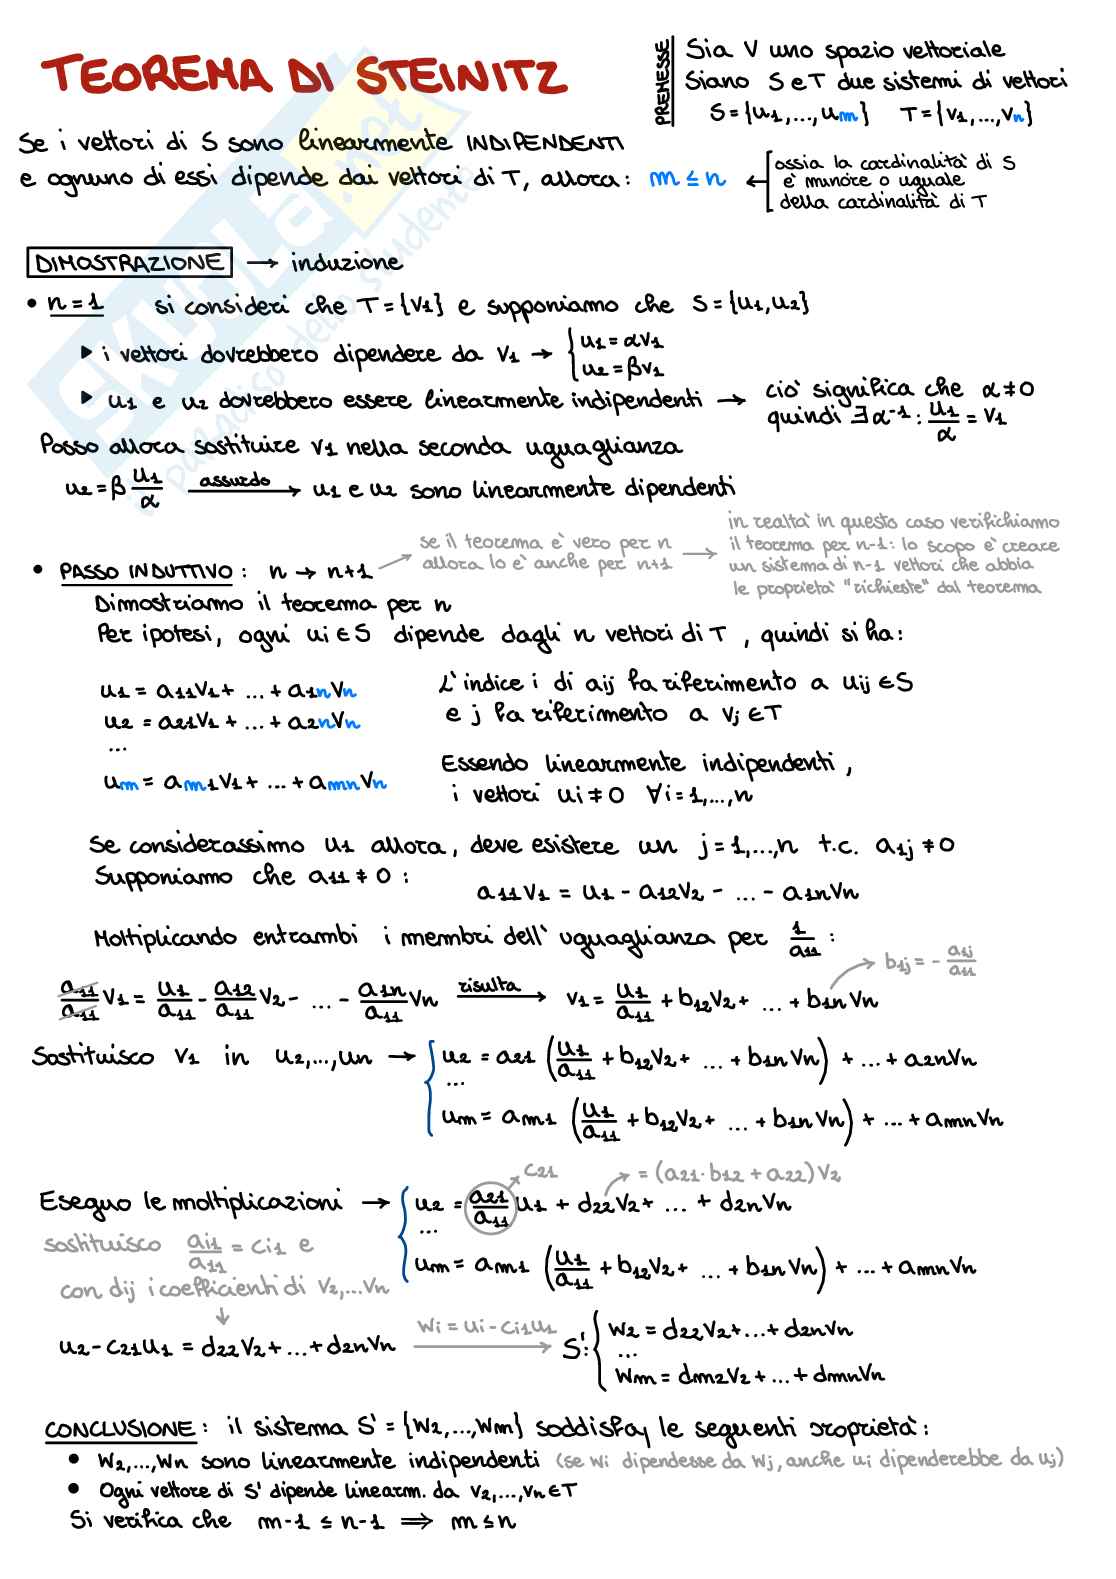 TEOREMA DI STEINITZ
PREMESSE
Sia V uno spazio vettoriale
Siano S e T due sistemi di vettori
S = {u1,...,um} T = {v1,...,vn}
Se i vettori di S sono linearmente INDIPENDENTI
e ognuno di essi dipende dai vettori di T, allora: m ≤ n
ossia la cardinalità di S
è minore o uguale
della cardinalità di T
DIMOSTRAZIONE → induzione
• n = 1 si consideri che T = {v1} e supponiamo che S = {u1,u2}
▶ i vettori dovrebbero dipendere da v1 → { u1 = αv1
u2 = βv1
▶ u1 e u2 dovrebbero essere linearmente indipendenti → ciò significa che α ≠ 0
quindi ∃ α^-1 : u1/α = v1
Posso allora sostituire v1 nella seconda uguaglianza
u2 = β u1/α assurdo → u1 e u2 sono linearmente dipendenti
• PASSO INDUTTIVO : n → n+1
se il teorema è vero per n
allora lo è anche per n+1
in realtà in questo caso verifichiamo
il teorema per n-1: lo scopo è creare
un sistema di n-1 vettori che abbia
le proprietà "richieste" dal teorema
Dimostriamo il teorema per n
Per ipotesi, ogni ui ∈ S dipende dagli n vettori di T , quindi si ha:
u1 = a11v1 + ... + a1nvn
u2 = a21v1 + ... + a2nvn
...
um = am1v1 + ... + amnvn
L'indice i di aij fa riferimento a uij ∈ S
e j fa riferimento a vj ∈ T
Essendo linearmente indipendenti,
i vettori ui ≠ 0 ∀i = 1,...,n
Se considerassimo u1 allora, deve esistere un j = 1,...,n t.c. a1j ≠ 0
Supponiamo che a11 ≠ 0 :
a11v1 = u1 - a12v2 - ... - a1nvn
Moltiplicando entrambi i membri dell'uguaglianza per 1/a11 :
b1j = - a1j/a11
a11/a11 v1 = u1/a11 - a12/a11 v2 - ... - a1n/a11 vn risulta → v1 = u1/a11 + b12v2 + ... + b1nvn
Sostituisco v1 in u2,...,un → { u2 = a21 (u1/a11 + b12v2 + ... + b1nvn) + ... + a2nvn
...
um = am1 (u1/a11 + b12v2 + ... + b1nvn) + ... + amnvn
c21 = (a21·b12 + a22)v2
Eseguo le moltiplicazioni → { u2 = a21/a11 u1 + d22v2 + ... + d2nvn
...
um = am1 (u1/a11 + b12v2 + ... + b1nvn) + ... + amnvn
sostituisco ai1/a11 = ci1 e
con dij i coefficienti di v2,...vn
u2 - c21u1 = d22v2 + ... + d2nvn wi = ui - ci1u1 → S': { w2 = d22v2 + ... + d2nvn
...
wm = dm2v2 + ... + dmnvn
CONCLUSIONE : il sistema S' = {w2,...,wm} soddisfa, le seguenti proprietà:
• w2,...,wn sono linearmente indipendenti (se wi dipendesse da wj, anche ui dipenderebbe da uj)
• Ogni vettore di S' dipende linearm. da v2,...,vn ∈ T
Si verifica che m-1 ≤ n-1 ⟹ m ≤ n
SKUOLA.net
il paradiso dello studente